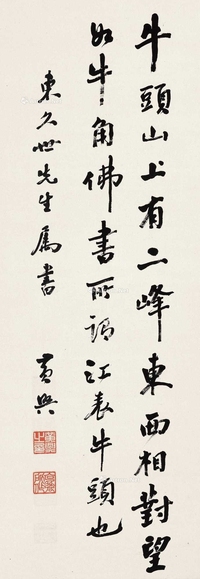 牛頭山上有二峰東西相對望
如牛角佛書所謂江表牛頭也
東久世先生属書
黄興